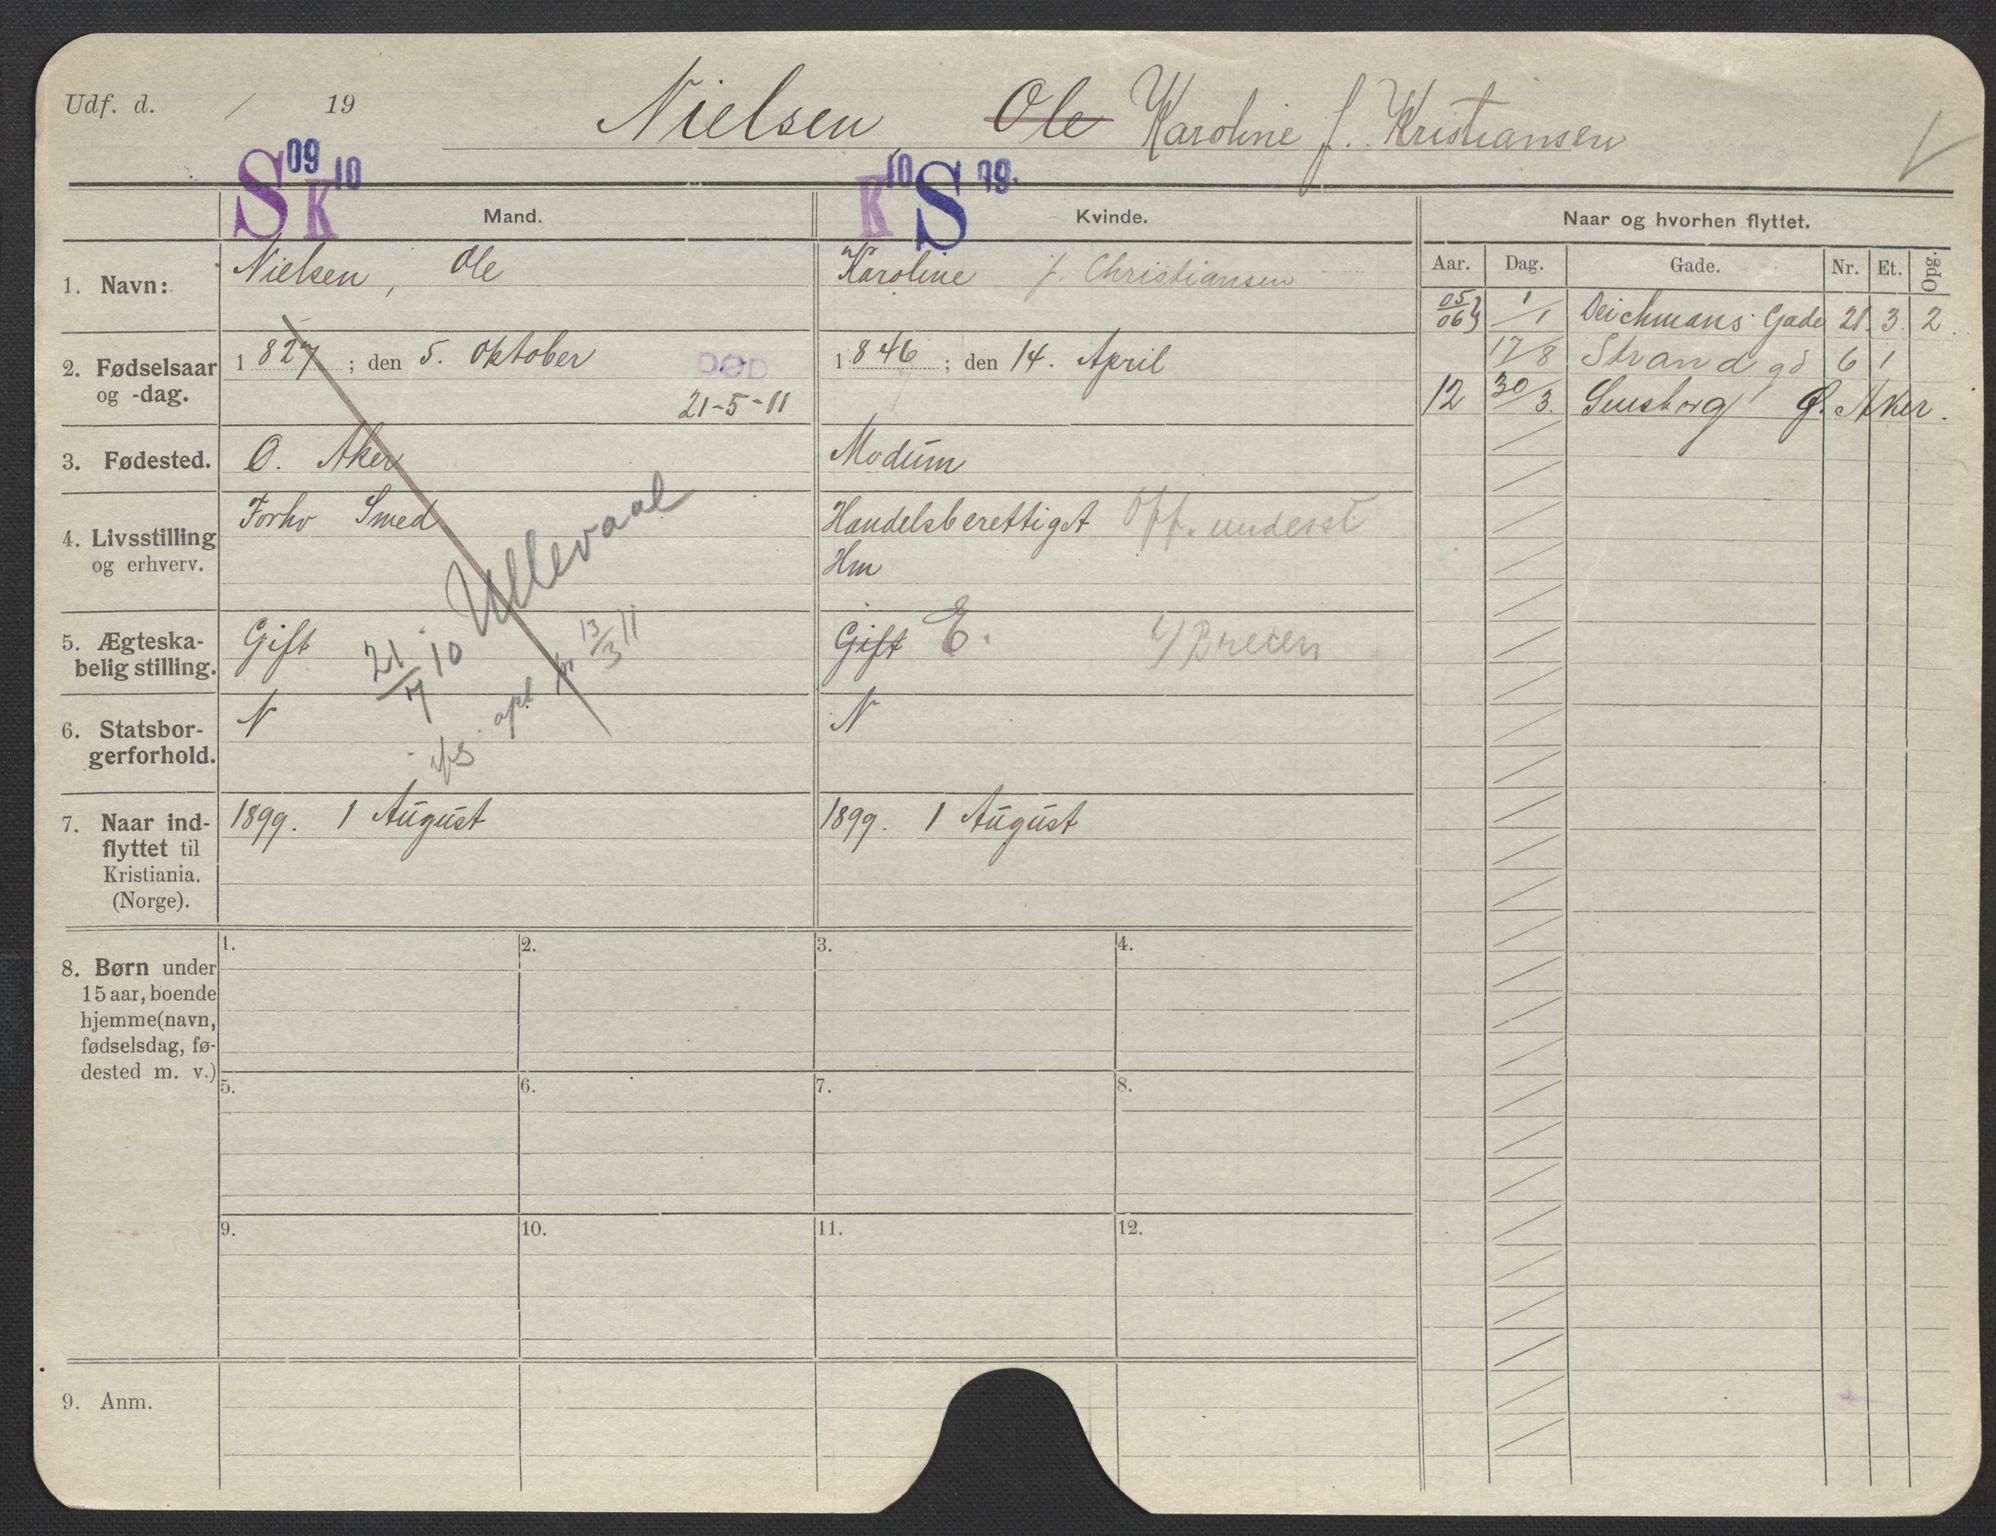 Udf. d. / 19
Nielsen Ole Karoline f. Kristiansen
S 09 K 10
K 10 S 09.
Mand.
Kvinde.
Naar og hvorhen flyttet.
Aar. Dag. Gade. Nr. Et. Opg.
1. Navn:
Nielsen, Ole
Karoline f. Christiansen
05/06 1/1 Deichmans Gade 21. 3. 2.
17/8 Strandgd 6 1
12 30/3. Ø. Aker.
2. Fødselsaar
og -dag.
1827; den 5. Oktober
DØD
21-5-11
1846; den 14. April
3. Fødested.
Ø. Aker
Modum
4. Livsstilling
og erhverv.
Forhv Smed
Handelsberettiget Off. underst
Hm
Ullevaal
21/7 10
13/3 11
5. Ægteska-
belig stilling.
Gift
Gift E.
6. Statsbor-
gerforhold.
N
N
7. Naar ind-
flyttet til
Kristiania.
(Norge).
1899. 1 August
1899. 1 August
8. Børn under
15 aar, boende
hjemme (navn,
fødselsdag, fø-
dested m. v.)
1. 2. 3. 4.
5. 6. 7. 8.
9. 10. 11. 12.
9. Anm.